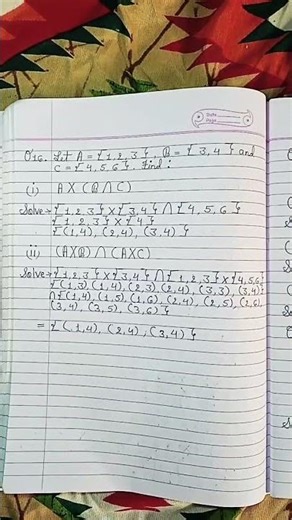 Date
Page
Q16. Let A = {1,2,3}, B = {3,4} and
C = {4,5,6}. Find:
(i) A X (B ∩ C)
Solve → {1,2,3} X {3,4} ∩ {4,5,6}
{1,2,3} X {4}
{(1,4), (2,4), (3,4)}
(ii) (AXB) ∩ (AXC)
Solve → {1,2,3} X {3,4} ∩ {1,2,3} X {4,5,6}
{(1,3), (1,4), (2,3), (2,4), (3,3), (3,4)}
∩ {(1,4), (1,5), (1,6), (2,4), (2,5), (2,6),
(3,4), (3,5), (3,6)}
= {(1,4), (2,4), (3,4)}